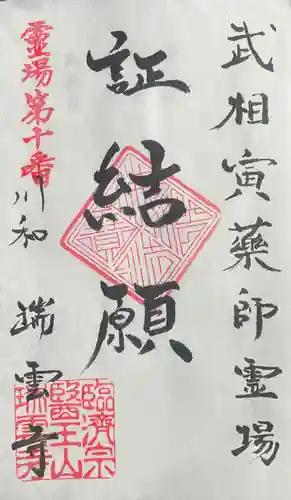 武相寅薬師霊場
証結願
霊場第十番
川和 瑞雲寺
臨済宗
醫王山
瑞雲寺